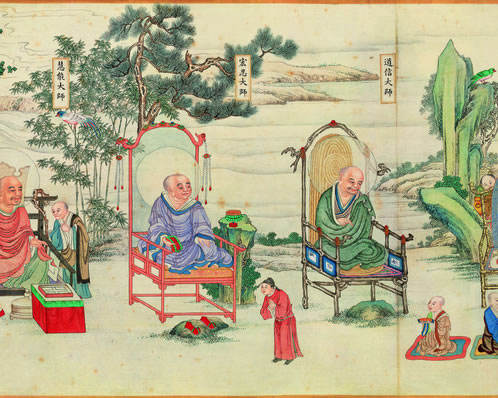 道信大師
宏忍大師
慧能大師